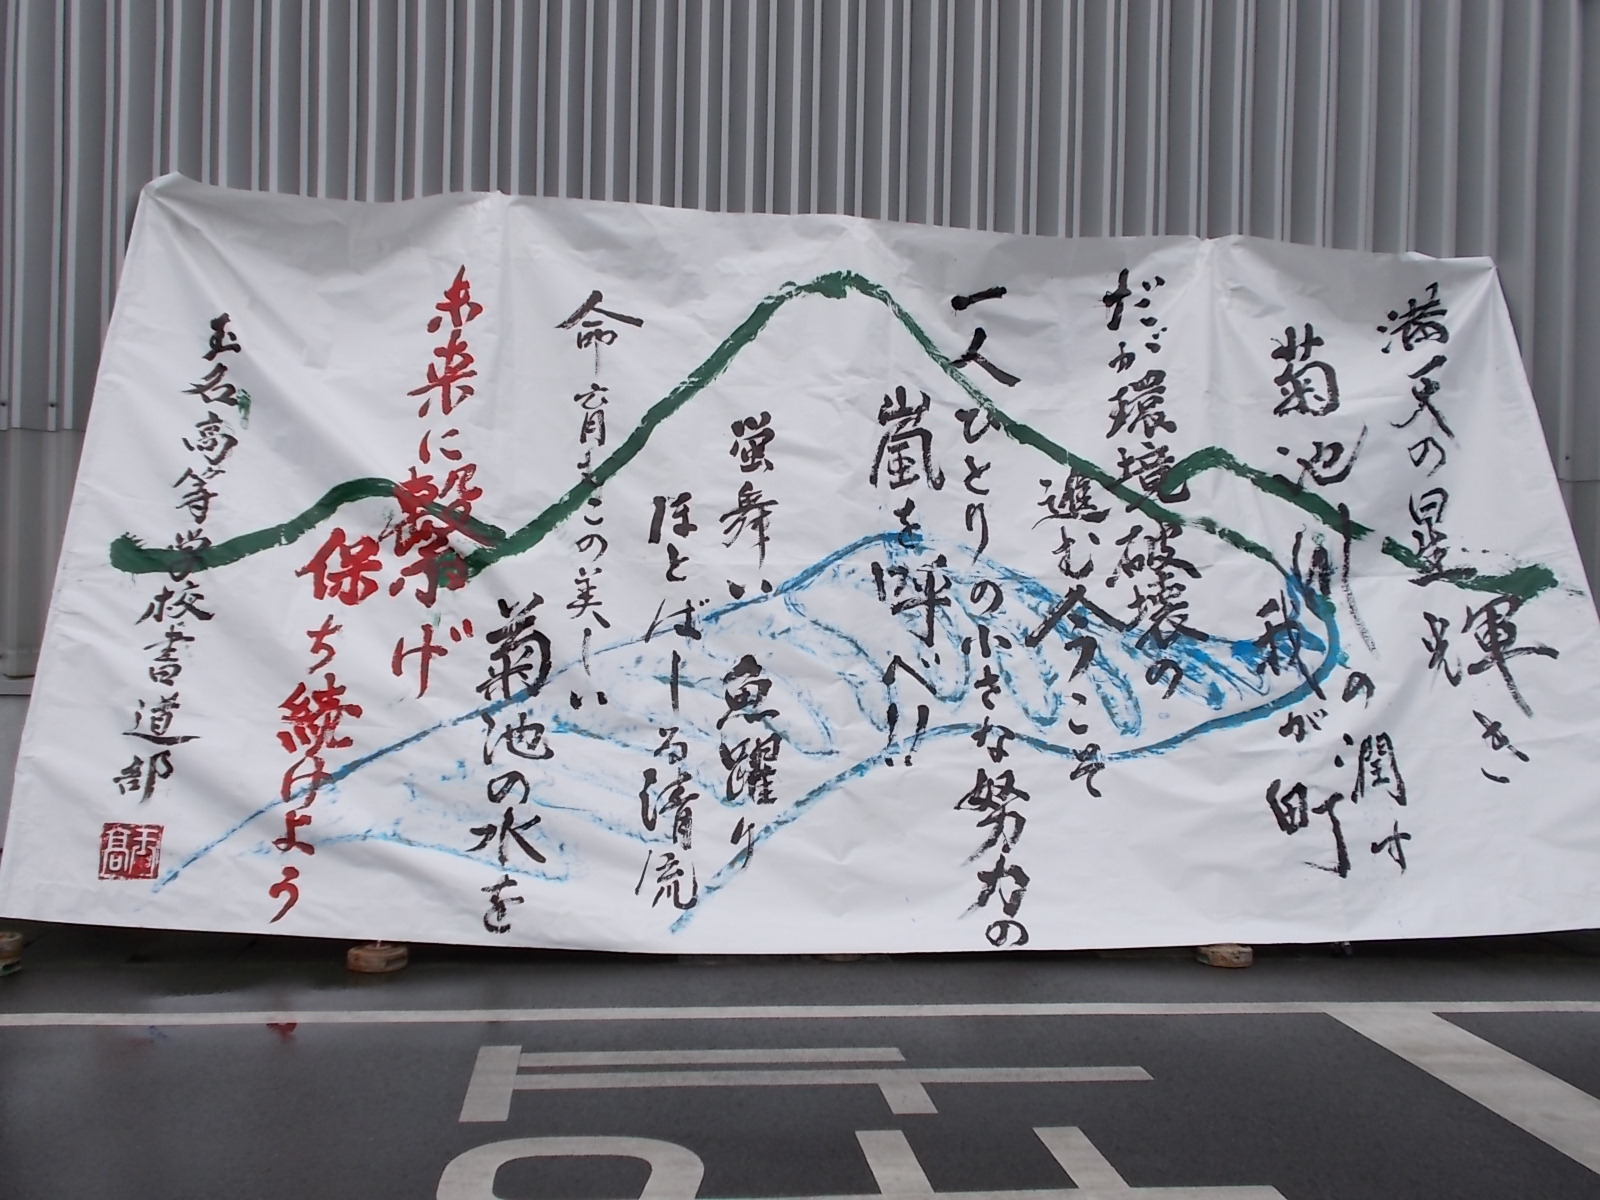 満天の星輝き
菊池川の潤す
我が町
だが環境破壊の
進む今こそ
一人ひとりの小さな努力の
嵐を呼べ!!
蛍舞い魚躍り
ほとばしる清流
命育むこの美しい
菊池の水を
未来に繋げ
保ち続けよう
玉名高等学校書道部
玉高